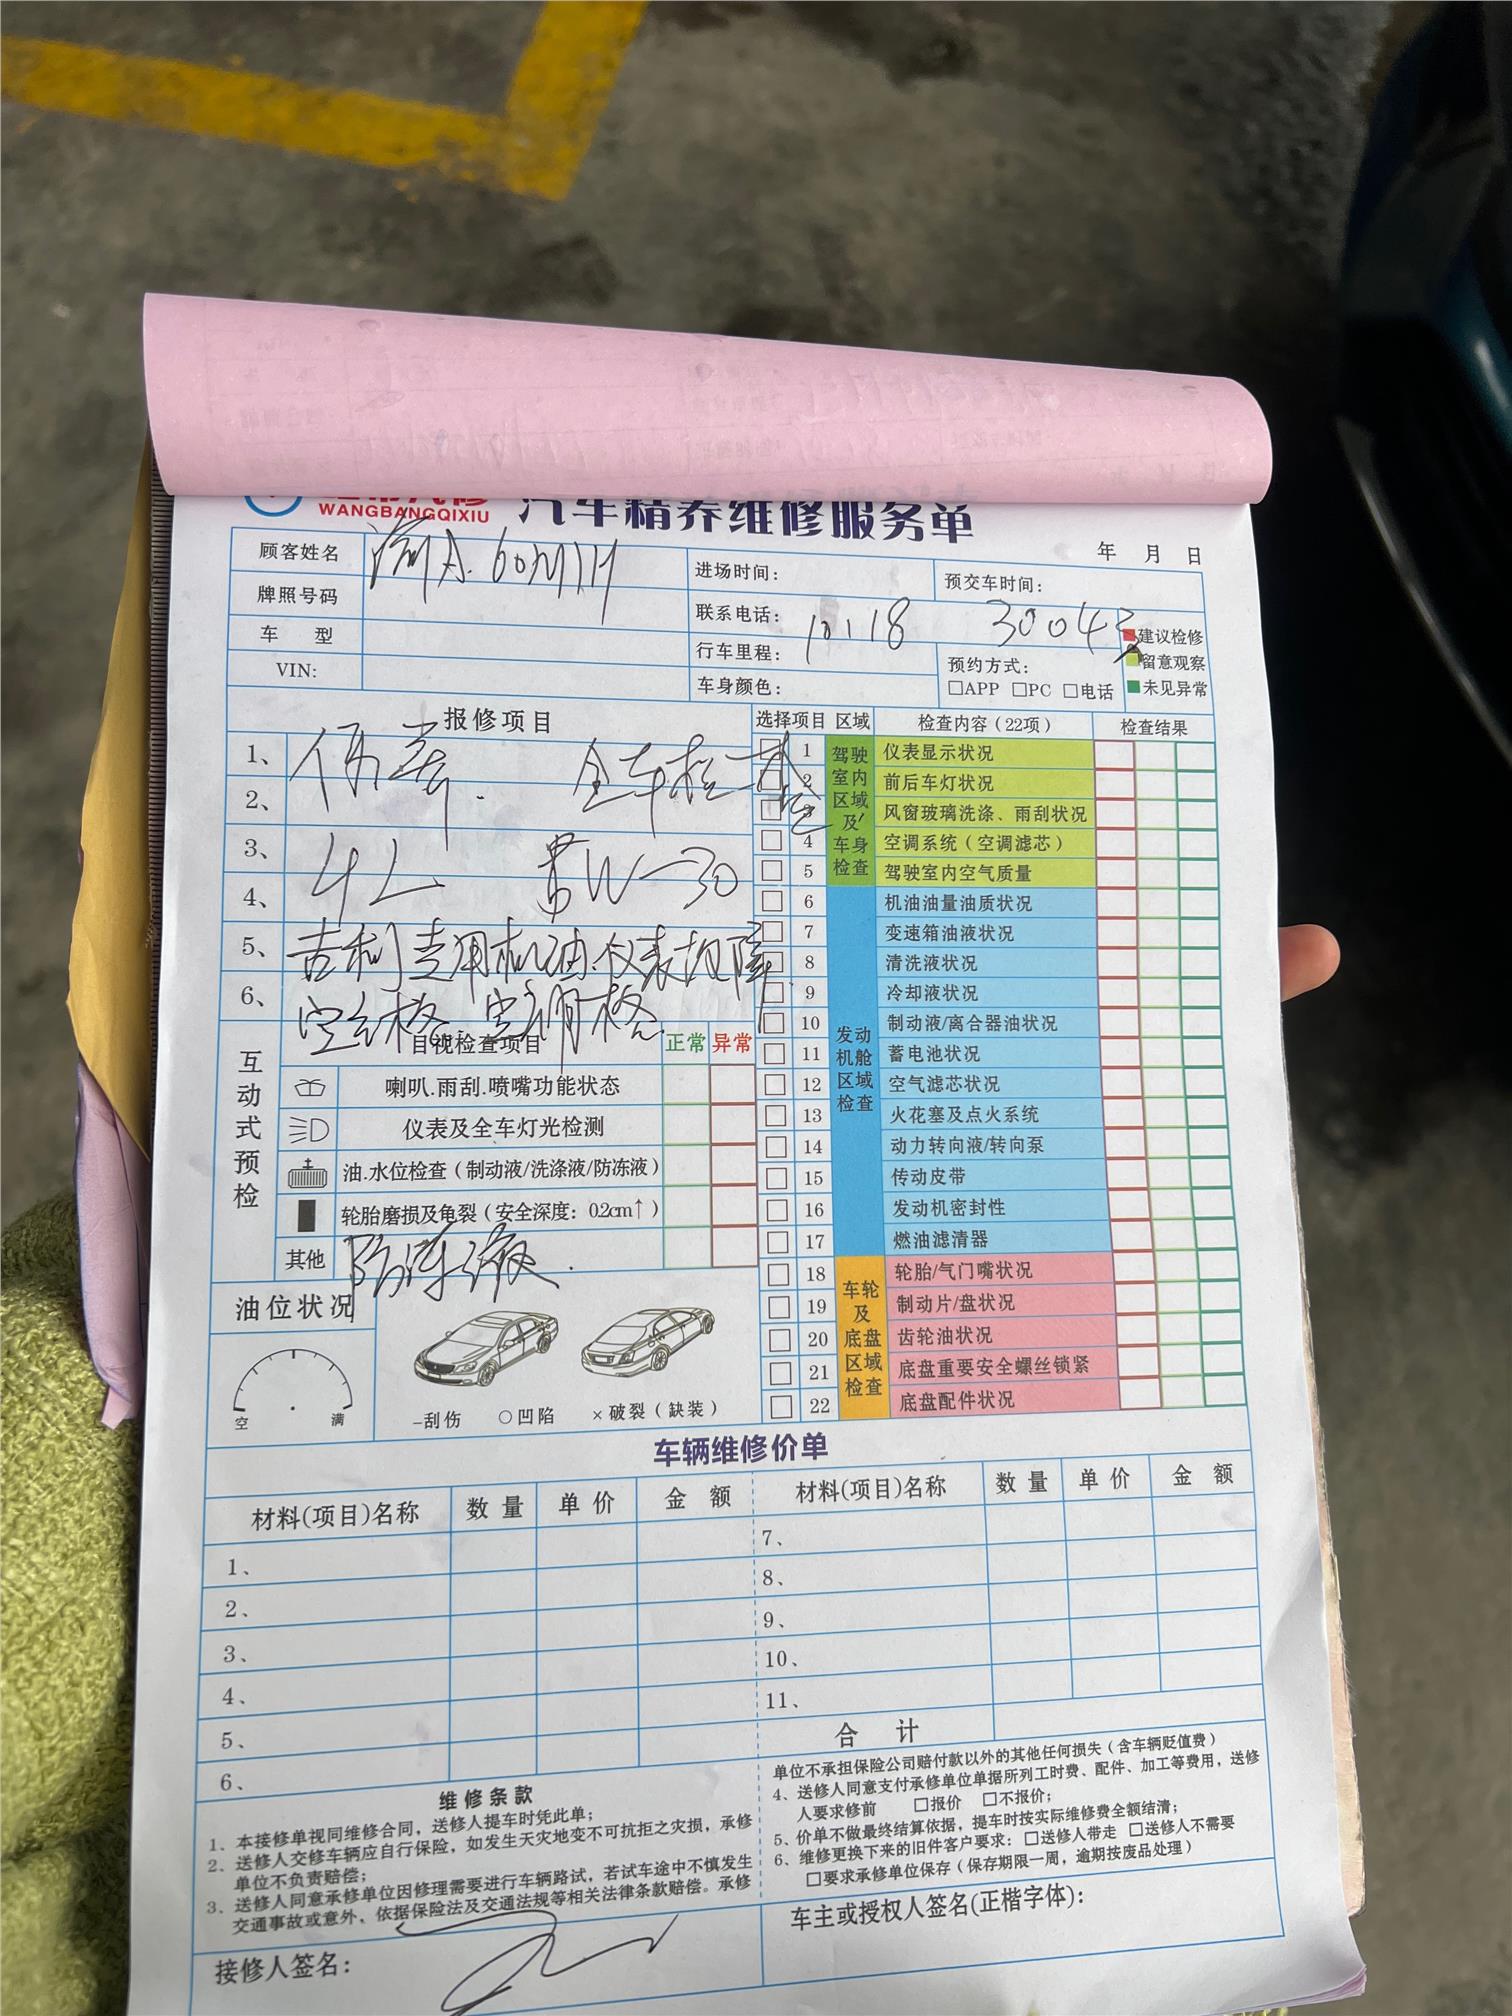 WANGBANGQIXIU 汽车精养维修服务单
年 月 日
顾客姓名
进场时间：
预交车时间：
牌照号码
联系电话：
车 型
行车里程：
预约方式：
VIN:
车身颜色：
□APP □PC □电话
30043
建议检修
留意观察
未见异常
报修项目
1、保养. 全车检查
2、
3、4L W-30
4、
5、吉利专用机油.仪表故障
6、空气格.空调格.
选择项目 区域 检查内容（22项） 检查结果
驾驶室内区域及车身检查
1 仪表显示状况
2 前后车灯状况
3 风窗玻璃洗涤、雨刮状况
4 空调系统（空调滤芯）
5 驾驶室内空气质量
发动机舱区域检查
6 机油油量油质状况
7 变速箱油液状况
8 清洗液状况
9 冷却液状况
10 制动液/离合器油状况
11 蓄电池状况
12 空气滤芯状况
13 火花塞及点火系统
14 动力转向液/转向泵
15 传动皮带
16 发动机密封性
17 燃油滤清器
车轮及底盘区域检查
18 轮胎/气门嘴状况
19 制动片/盘状况
20 齿轮油状况
21 底盘重要安全螺丝锁紧
22 底盘配件状况
互动式预检
目视检查项目 正常 异常
喇叭.雨刮.喷嘴功能状态
仪表及全车灯光检测
油.水位检查（制动液/洗涤液/防冻液）
轮胎磨损及龟裂（安全深度：0.2cm↑）
其他 防冻液.
油位状况
空 满
-刮伤 ○凹陷 ×破裂（缺装）
车辆维修价单
材料(项目)名称 数量 单价 金 额 材料(项目)名称 数量 单价 金 额
1、
2、
3、
4、
5、
6、
7、
8、
9、
10、
11、
合 计
维修条款
1、本接修单视同维修合同，送修人提车时凭此单；
2、送修人交修车辆应自行保险，如发生天灾地变不可抗拒之灾损，承修
单位不负责赔偿；
3、送修人同意承修单位因修理需要进行车辆路试，若试车途中不慎发生
交通事故或意外，依据保险法及交通法规等相关法律条款赔偿。承修
单位不承担保险公司赔付款以外的其他任何损失（含车辆贬值费）
4、送修人同意支付承修单位单据所列工时费、配件、加工等费用，送修
人要求修前 □报价 □不报价；
5、价单不做最终结算依据，提车时按实际维修费全额结清；
6、维修更换下来的旧件客户要求：□送修人带走 □送修人不需要
□要求承修单位保存（保存期限一周，逾期按废品处理）
接修人签名：
车主或授权人签名(正楷字体)：